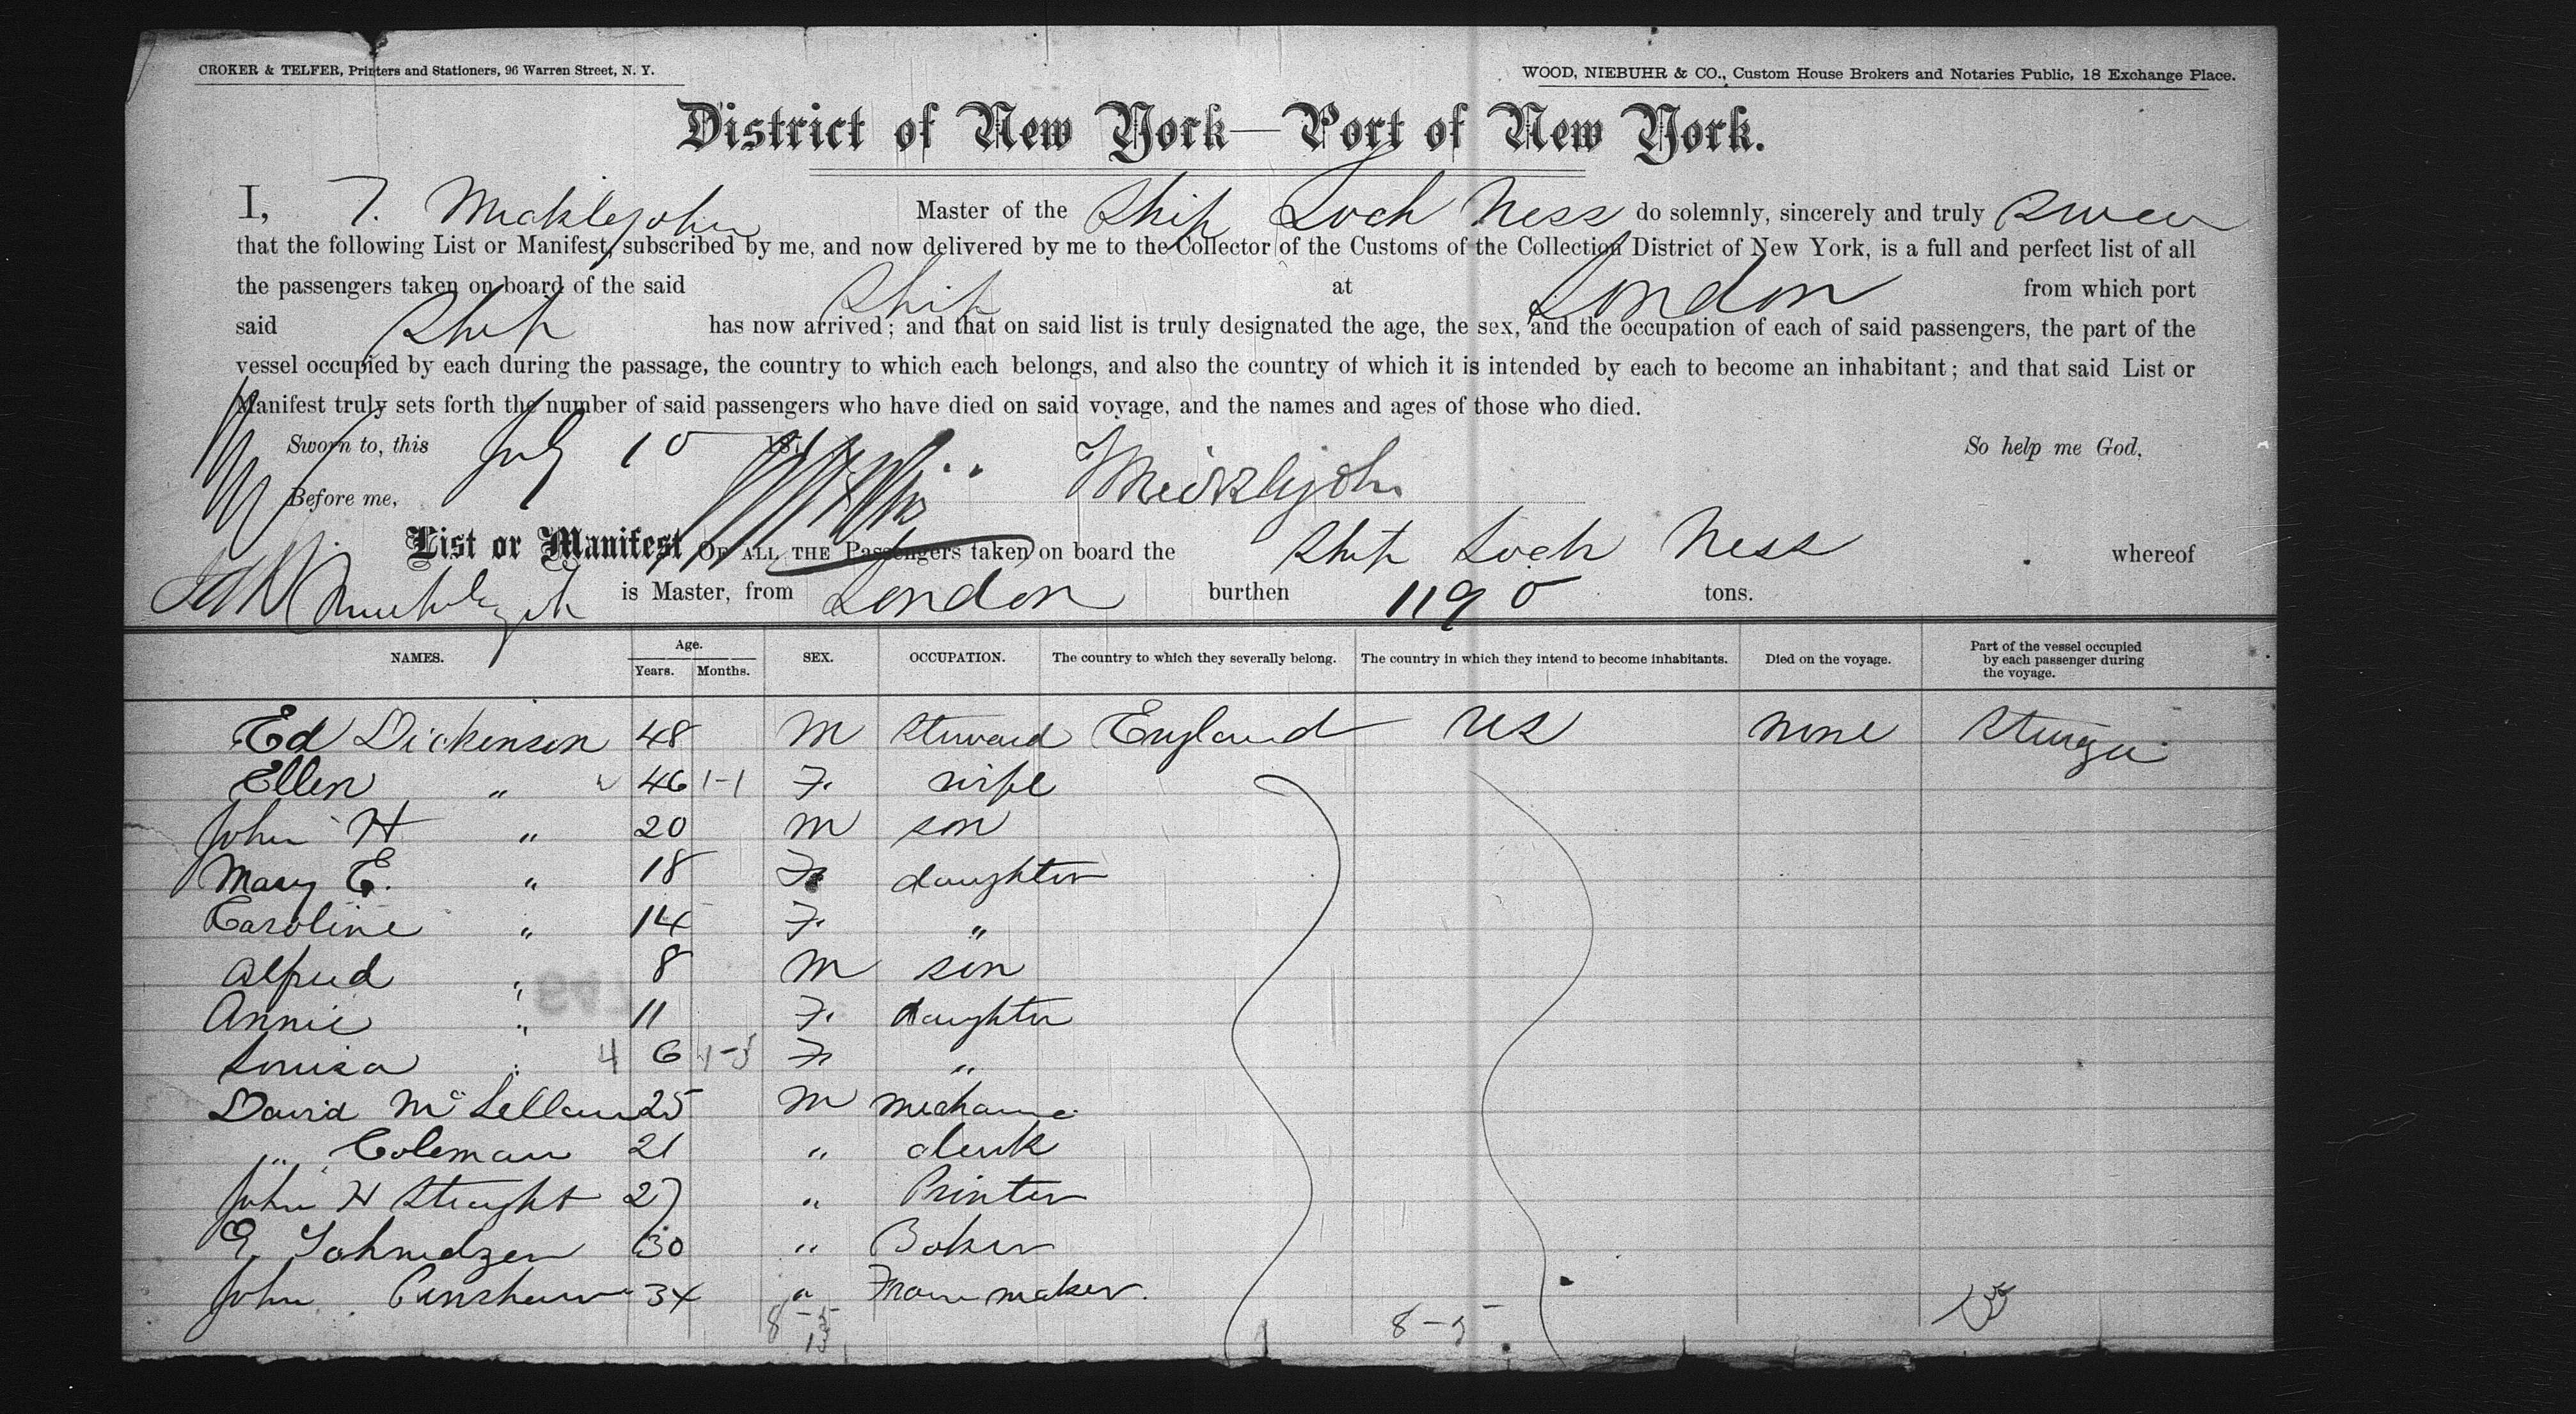 CROKER & TELFER, Printers and Stationers, 96 Warren Street, N. Y.
WOOD, NIEBUHR & CO., Custom House Brokers and Notaries Public, 18 Exchange Place.
District of New York—Port of New York.
I, T. Micklejohn Master of the Ship Loch Ness do solemnly, sincerely and truly swear
that the following List or Manifest, subscribed by me, and now delivered by me to the Collector of the Customs of the Collection District of New York, is a full and perfect list of all
the passengers taken on board of the said Ship at London from which port
said Ship has now arrived; and that on said list is truly designated the age, the sex, and the occupation of each of said passengers, the part of the
vessel occupied by each during the passage, the country to which each belongs, and also the country of which it is intended by each to become an inhabitant; and that said List or
Manifest truly sets forth the number of said passengers who have died on said voyage, and the names and ages of those who died.
Sworn to, this July 10 187 So help me God,
Before me, Micklejohn
List or Manifest OF ALL THE Passengers taken on board the Ship Loch Ness whereof
is Master, from London burthen 1190 tons.
NAMES. Age. Years. Months. SEX. OCCUPATION. The country to which they severally belong. The country in which they intend to become inhabitants. Died on the voyage. Part of the vessel occupied by each passenger during the voyage.
Ed Dickinson 48 M Steward England US none
Ellen " 46 1-1 F. wife
John H " 20 M son
Mary E. " 18 F. daughter
Caroline " 14 F. "
Alfred " 8 M son
Annie " 11 F. daughter
Louisa " 4 6 F. "
David McLellan 25 M mechanic
" Coleman 21 " clerk
John H Straight 27 " Printer
E. 30 " Baker
John 34 " maker.
8-5 8-5
13